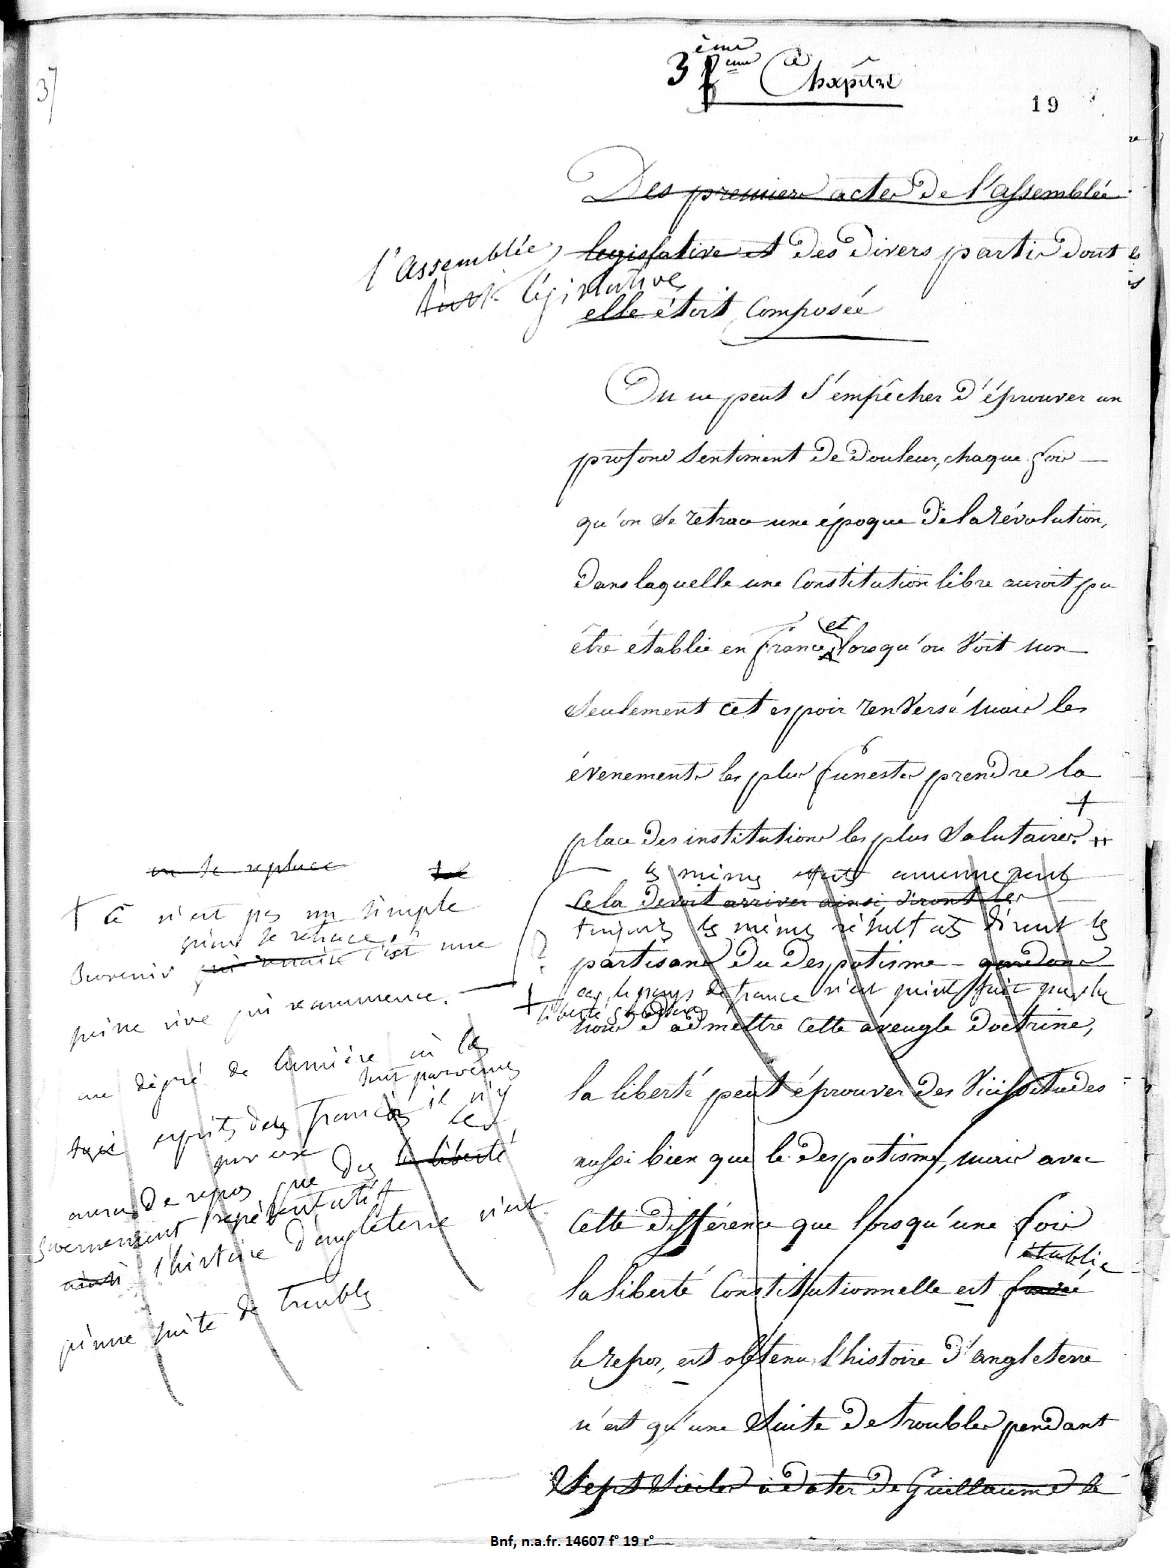 37
3ème Chapitre
19
Des premiers actes de l'assemblée
législative et des divers partis dont
l'Assemblée
législative
elle étoit composée
On ne peut s'empêcher d'éprouver un
profond sentiment de douleur, chaque fois
qu'on se retrace une époque de la révolution,
dans laquelle une constitution libre auroit pu
et
être établie en france, lorsqu'on voit non
seulement cet espoir renversé mais les
évenements les plus funestes prendre la
place des institutions les plus salutaires. +
les mêmes amenent
cela devoit arriver ainsi, diront les
toujours les mêmes résultats diront les
partisans du despotisme
car le pays de france n'est point fait pour la
liberté
nous d'admettre cette aveugle doctrine,
la liberté peut éprouver des vicissitudes
aussi bien que le despotisme, mais avec
cette différence que lorsqu'une fois
établie
la liberté constitutionnelle est fondée
le repos, est obtenu, l'histoire d'angleterre
n'est qu'une suite de troubles pendant
sept siècles à dater de Guillaume le
on se replace
+ Ce n'est pas un simple
qu'on se retrace,
souvenir c'est une
peine vive qui recommence.
au dégré de lumière où les
sont parvenus
esprits des français il n'y
pour eux
aura de repos que dans la liberté
gouvernement représentatif
l'histoire d'angleterre n'est
qu'une suite de troubles
Bnf, n.a.fr. 14607 f° 19 r°